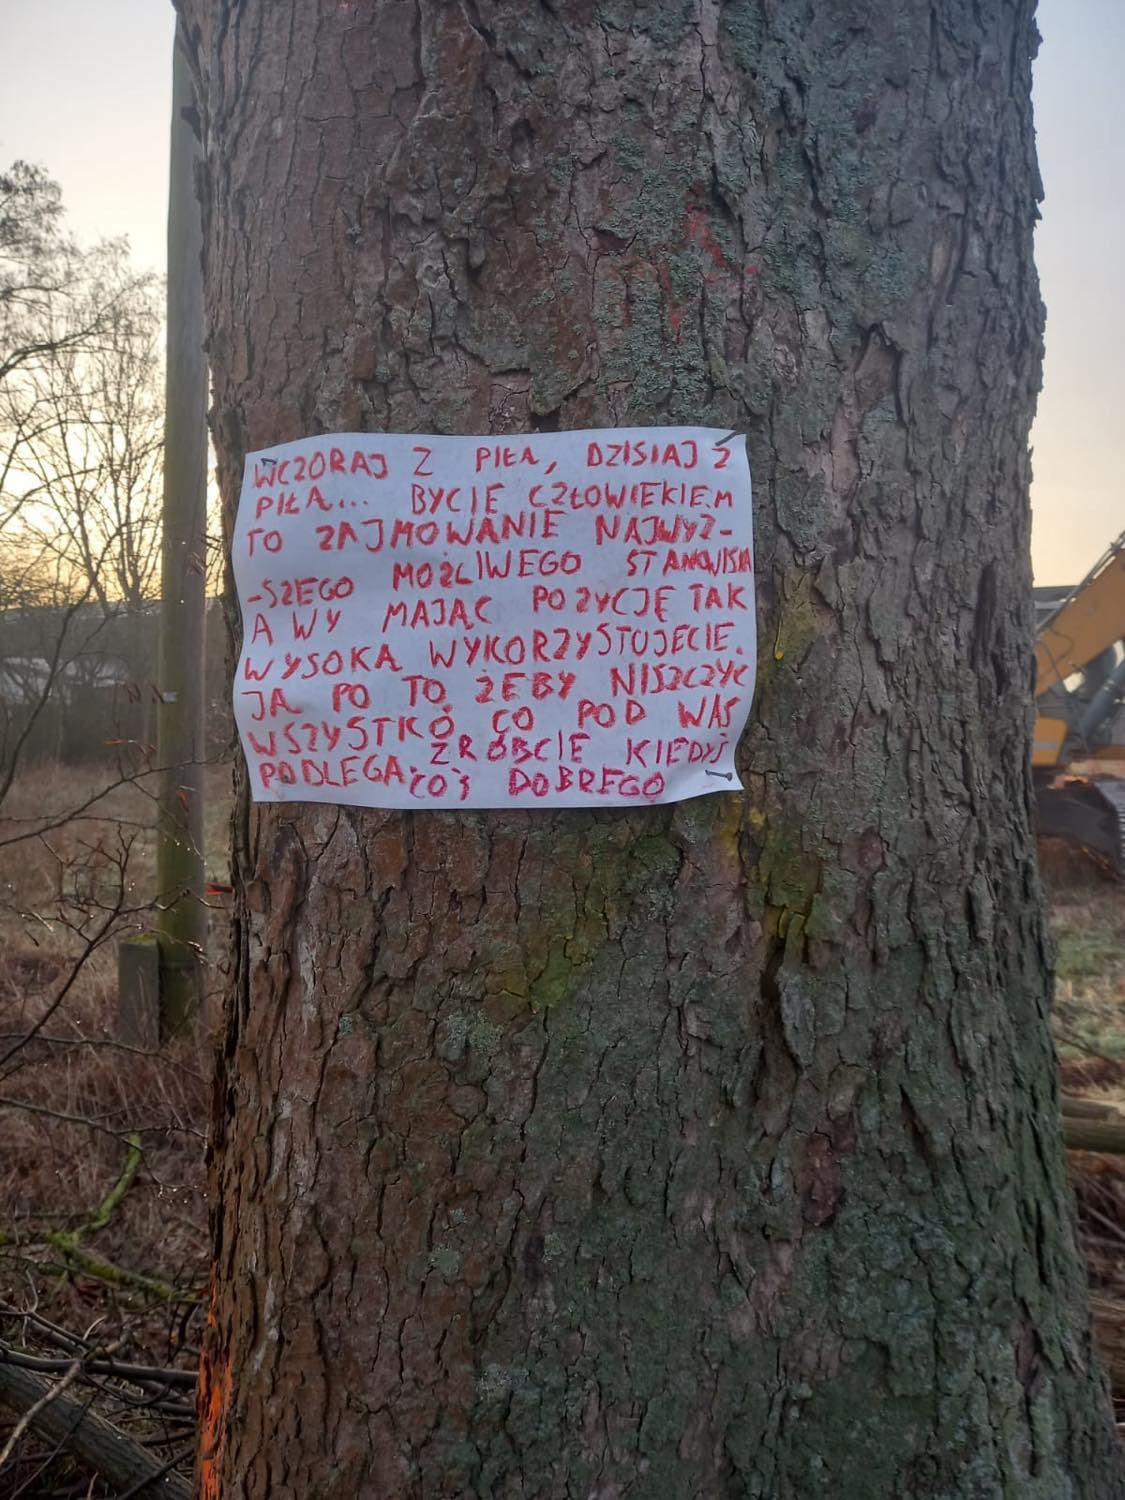 WCZORAJ Z PIŁĄ, DZISIAJ Z
PIŁĄ... BYCIE CZŁOWIEKIEM
TO ZAJMOWANIE NAJWYŻ-
-SZEGO MOŻLIWEGO STANOWISKA
A WY MAJĄC POZYCJĘ TAK
WYSOKĄ WYKORZYSTUJECIE.
JĄ PO TO ŻEBY NISZCZYĆ
WSZYSTKO CO POD WAS
PODLEGA. ZRÓBCIE KIEDYŚ
COŚ DOBREGO